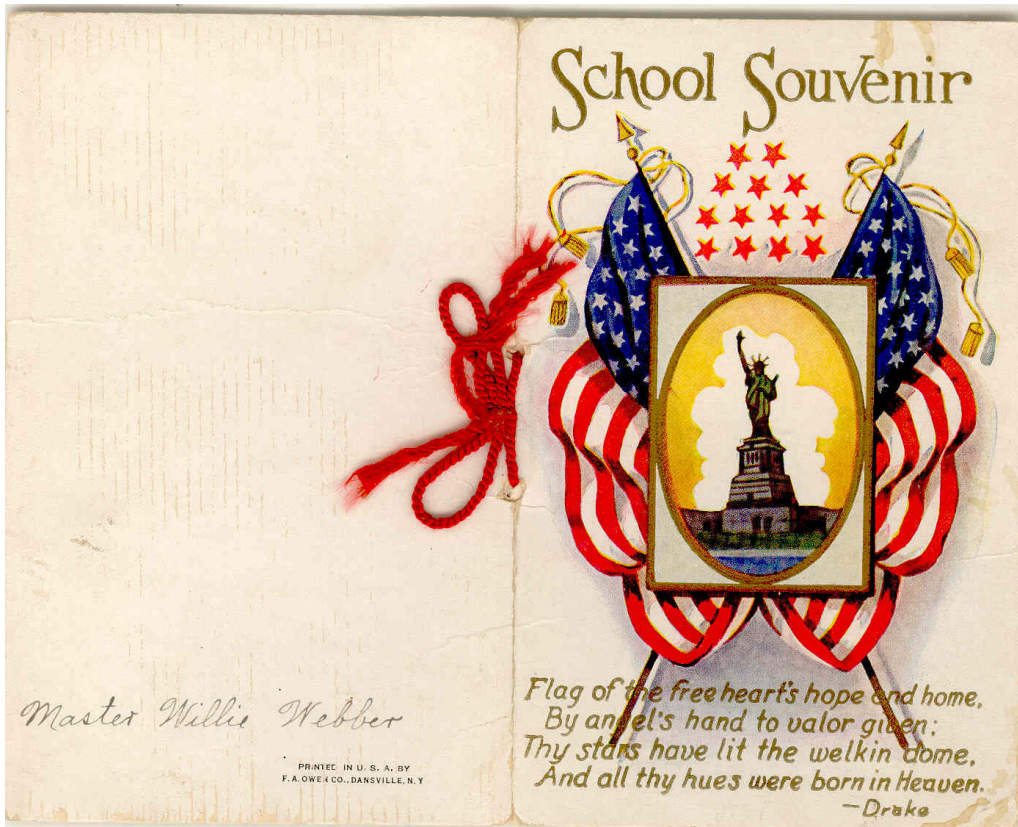 Master Willie Webber
PRINTED IN U. S. A. BY
F. A. OWEN CO., DANSVILLE, N. Y
School Souvenir
Flag of the free heart's hope and home,
By angel's hand to valor given;
Thy stars have lit the welkin dome,
And all thy hues were born in Heaven.
—Drake